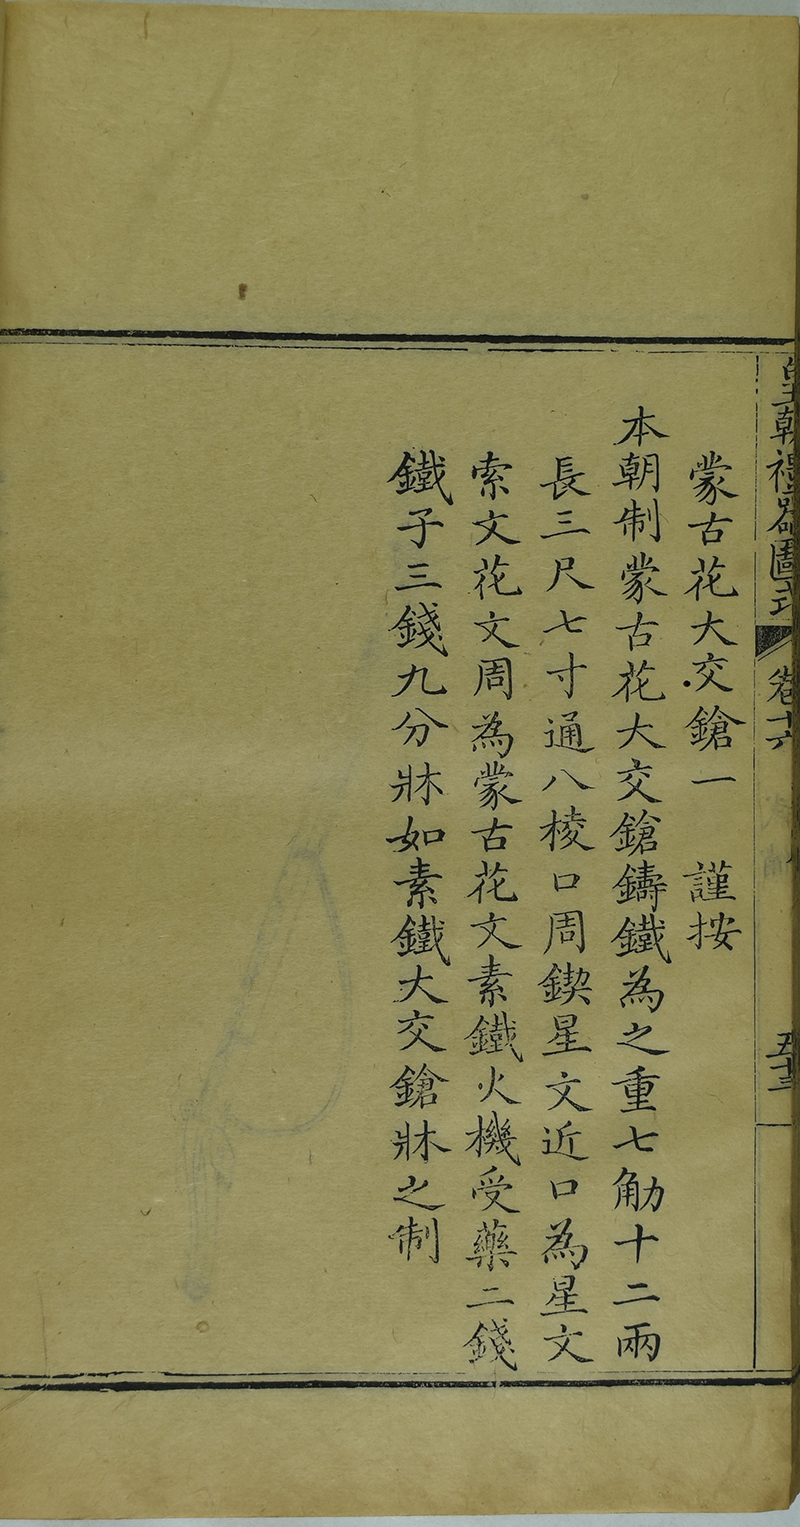 皇朝禮器圖式 卷十六 五十三
蒙古花大交鎗一　謹按
本朝制蒙古花大交鎗鑄鐵為之重七觔十二兩
長三尺七寸通八棱口周鍥星文近口為星文
索文花文周為蒙古花文素鐵火機受藥二錢
鐵子三錢九分牀如素鐵大交鎗牀之制